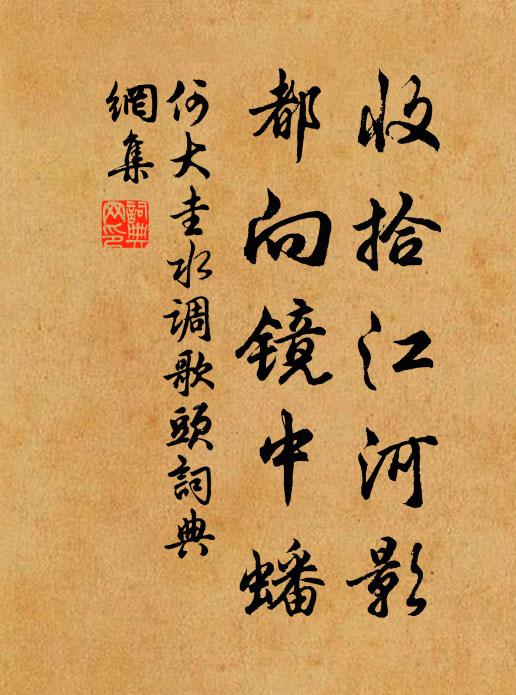 收拾江河影
都向镜中蟠
何大圭水调歌頭詞典
網集
詞典
网印